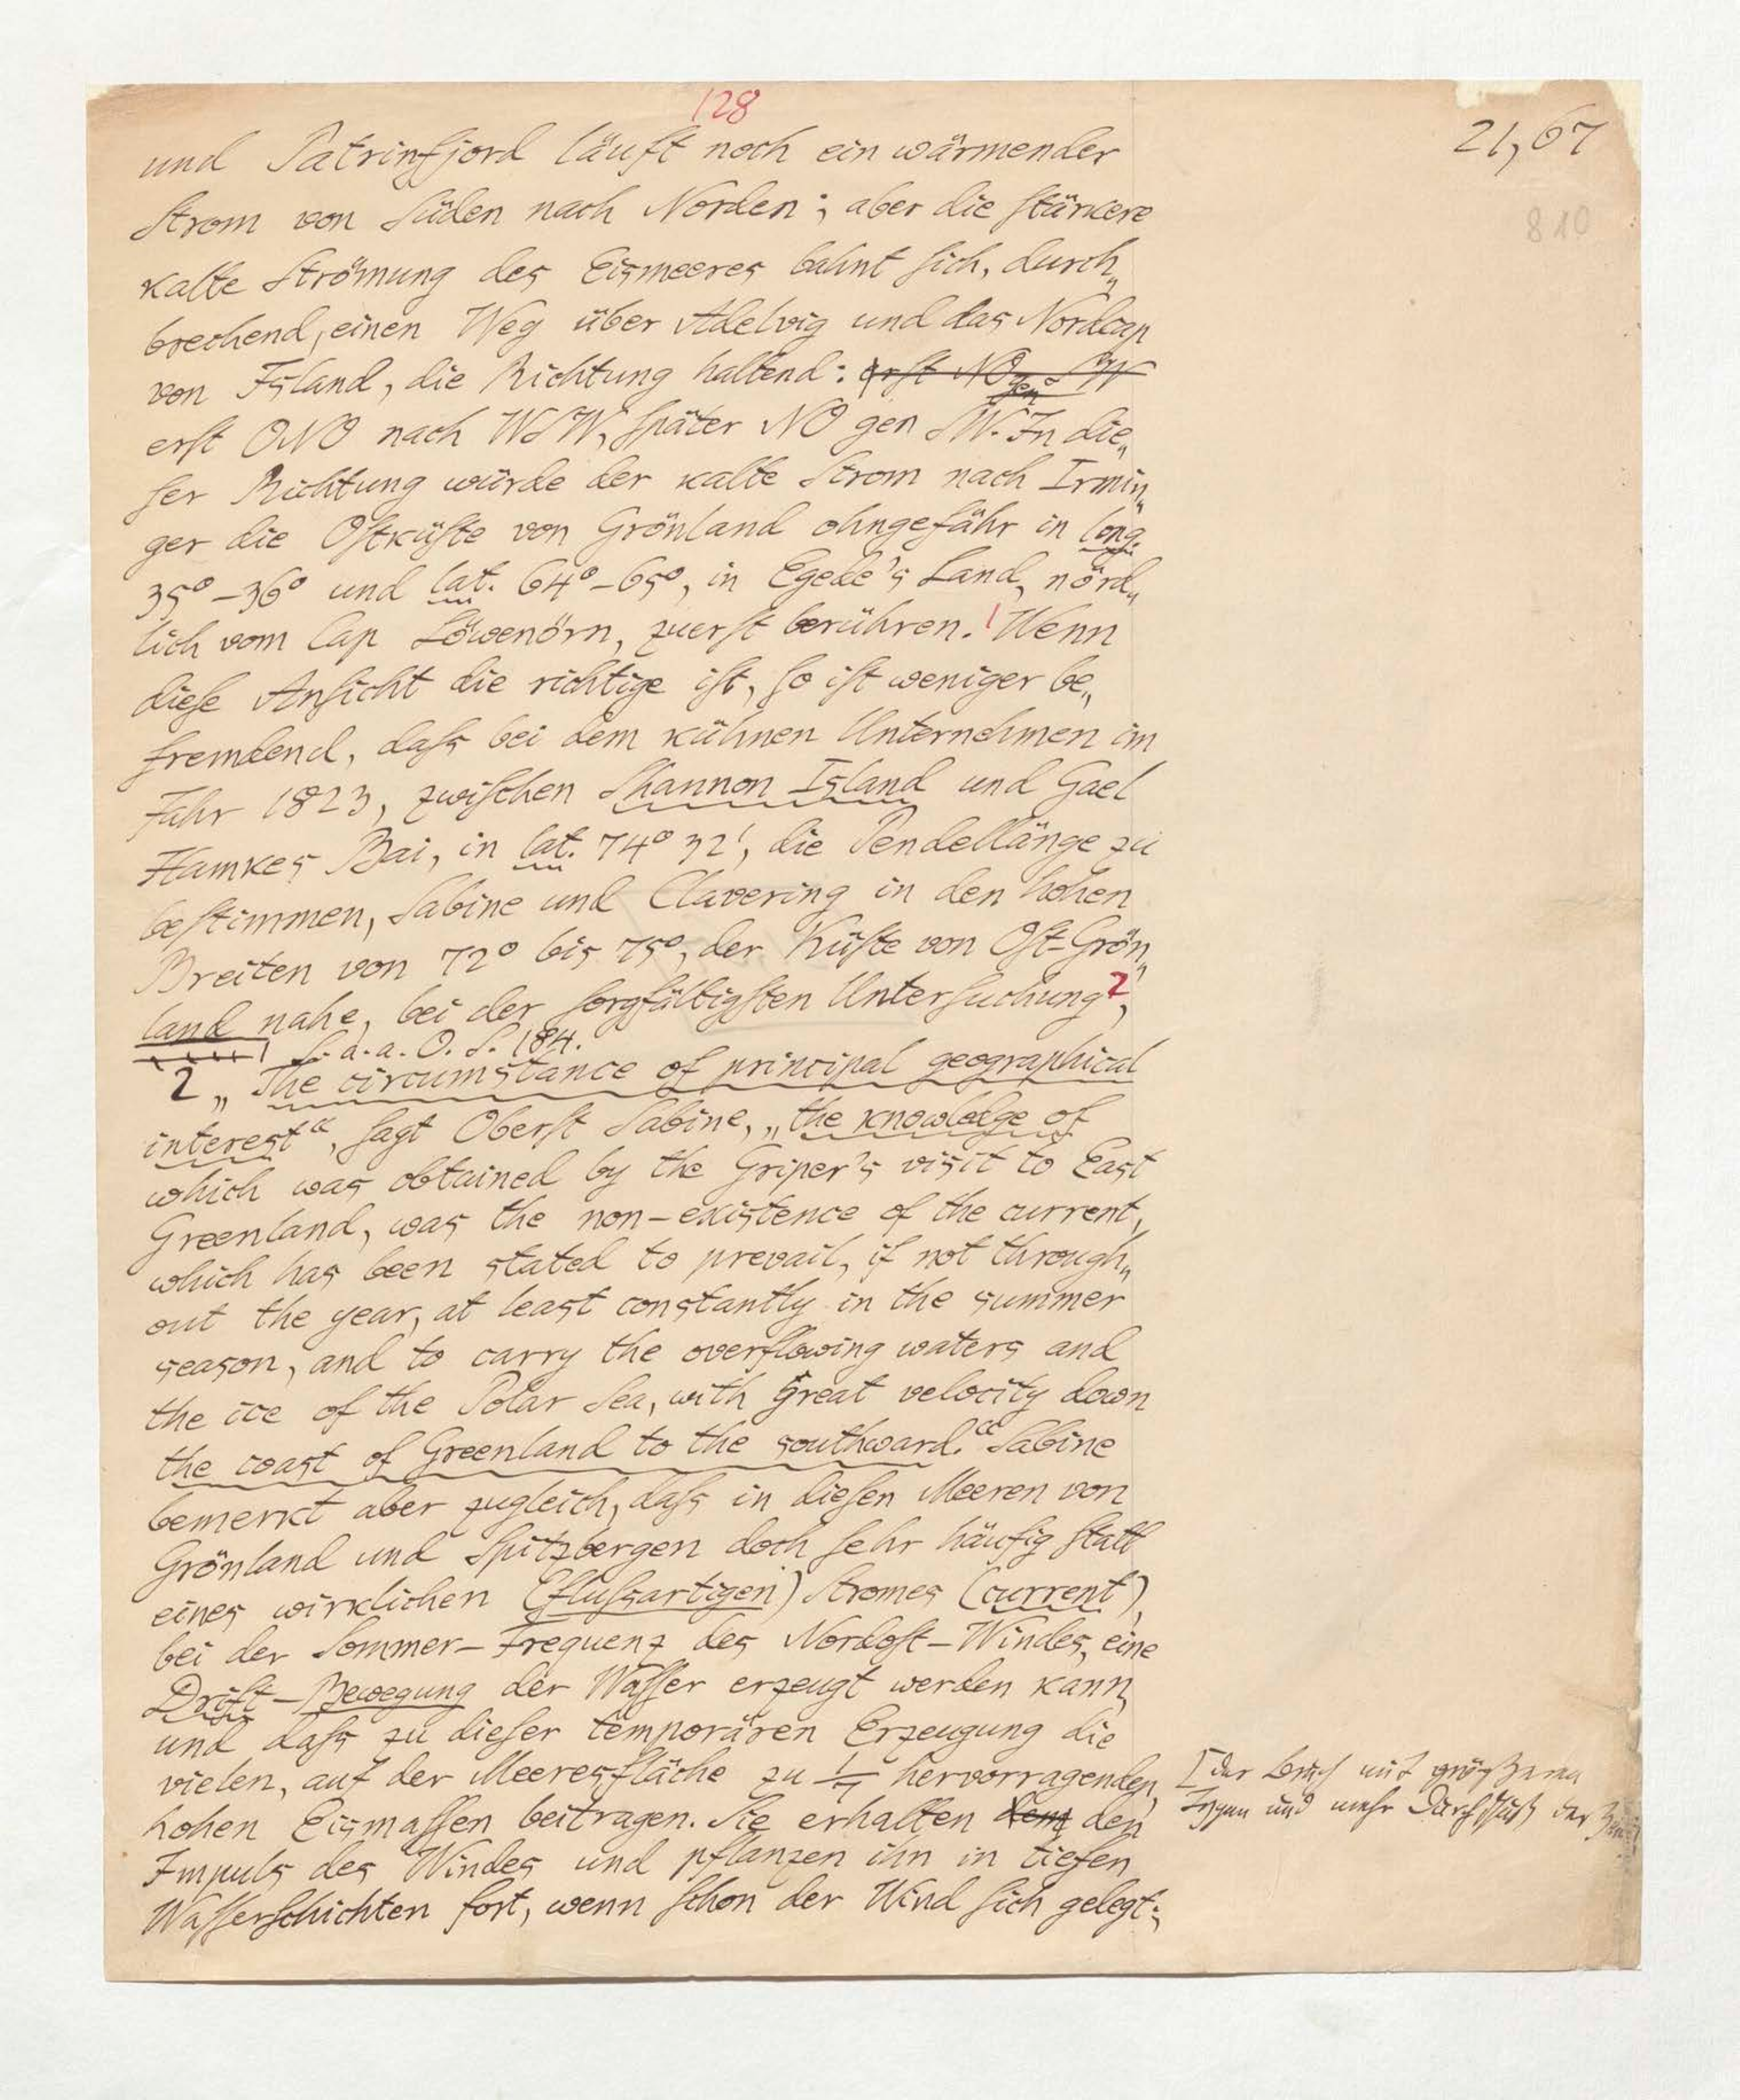 128
21,67
810
und Patrinfjord läuft noch ein wärmender
Strom von Süden nach Norden; aber die stärkere
kalte Strömung des Eismeeres bahnt sich, durch„
brechend, einen Weg über Adelvig und das Nordcap
von Island, die Richtung haltend: erst NO gen SW
erst ONO nach WSW, später NO gen SW. In die„
ser Richtung würde der kalte Strom nach Irmin„
ger die Ostküste von Grönland ohngefähr in long.
35° – 36° und lat. 64° – 65°, in Egede's Land, nörd„
lich vom Cap Löwenörn, zuerst berühren.¹ Wenn
diese Ansicht die richtige ist, so ist weniger be„
fremdend, dass bei dem kühnen Unternehmen im
Jahr 1823, zwischen Shannon Island und Gael
Hamkes Bai, in lat. 74° 32', die Pendellänge zu
bestimmen, Sabine und Clavering in den hohen
Breiten von 72° bis 75°, der Küste von Ost-Grön„
land nahe, bei der sorgfältigsten Untersuchung²,
1 S. a. a. O. S. 184.
2 „The circumstance of principal geographical
interest“, sagt Oberst Sabine, „the knowledge of
which was obtained by the Griper's visit to East
Greenland, was the non-existence of the current,
which has been stated to prevail, if not through„
out the year, at least constantly in the summer
season, and to carry the overflowing waters and
the ice of the Polar Sea, with great velocity down
the coast of Greenland to the southward.“ Sabine
bemerkt aber zugleich, dass in diesen Meeren von
Grönland und Spitzbergen doch sehr häufig statt
eines wirklichen (flussartigen) Stromes (current),
bei der Sommer-Frequenz des Nordost-Windes, eine
Drift-Bewegung der Wasser erzeugt werden kann,
und dass zu dieser temporären Erzeugung die
vielen, auf der Meeresfläche zu 1/7 hervorragenden,
hohen Eismassen beitragen. Sie erhalten dem den
Impuls des Windes und pflanzen ihn in tiefen
Wasserschichten fort, wenn schon der Wind sich gelegt;
[der Bruch mit größeren
Typen und mehr Durchschuß der